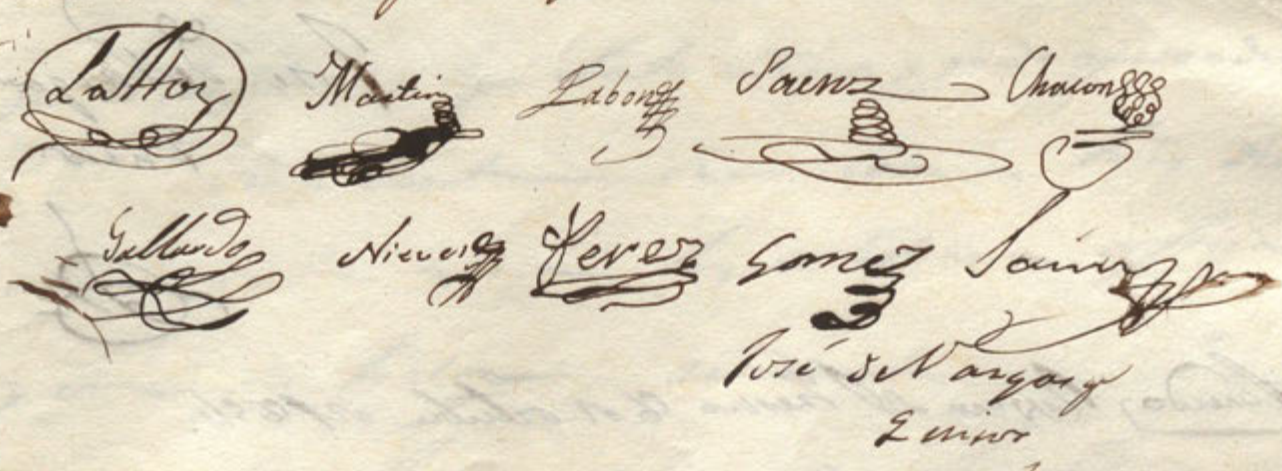 Martin Pabon Saenz Chacon
Gallardo Nieves Perez Gomez Sainz
José de Vargas